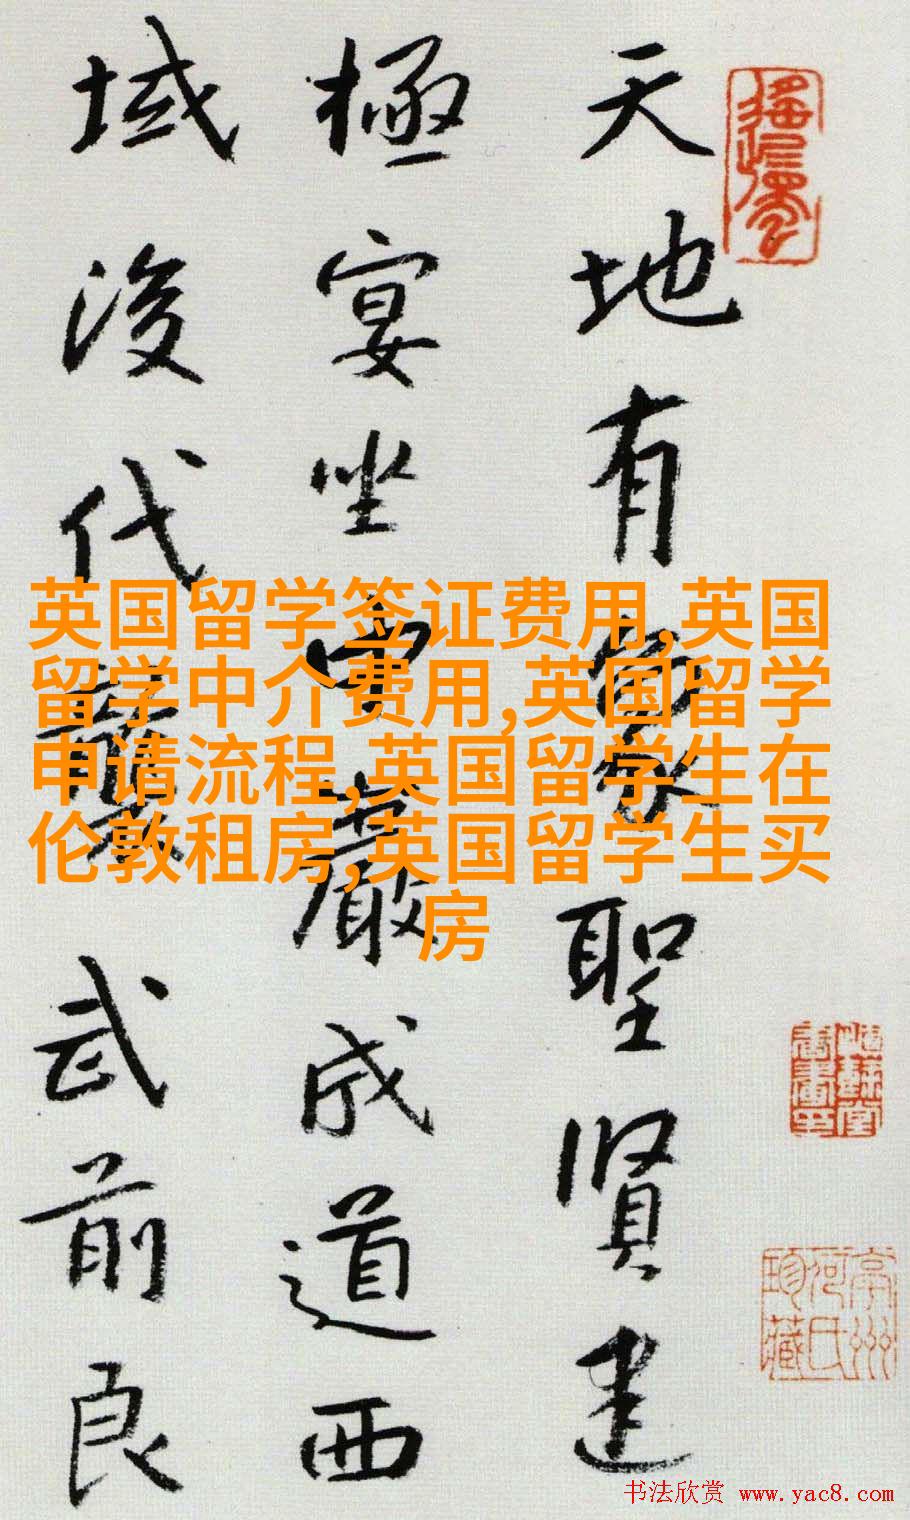 天地有象聖賢建
極宴坐中巖成道西
域後代襲武前良
英国留学签证费用,英国
留学中介费用,英国留学
申请流程,英国留学生在
伦敦租房,英国留学生买
房
亭州
河氏
珍藏
书法欣赏 www.yac8.com